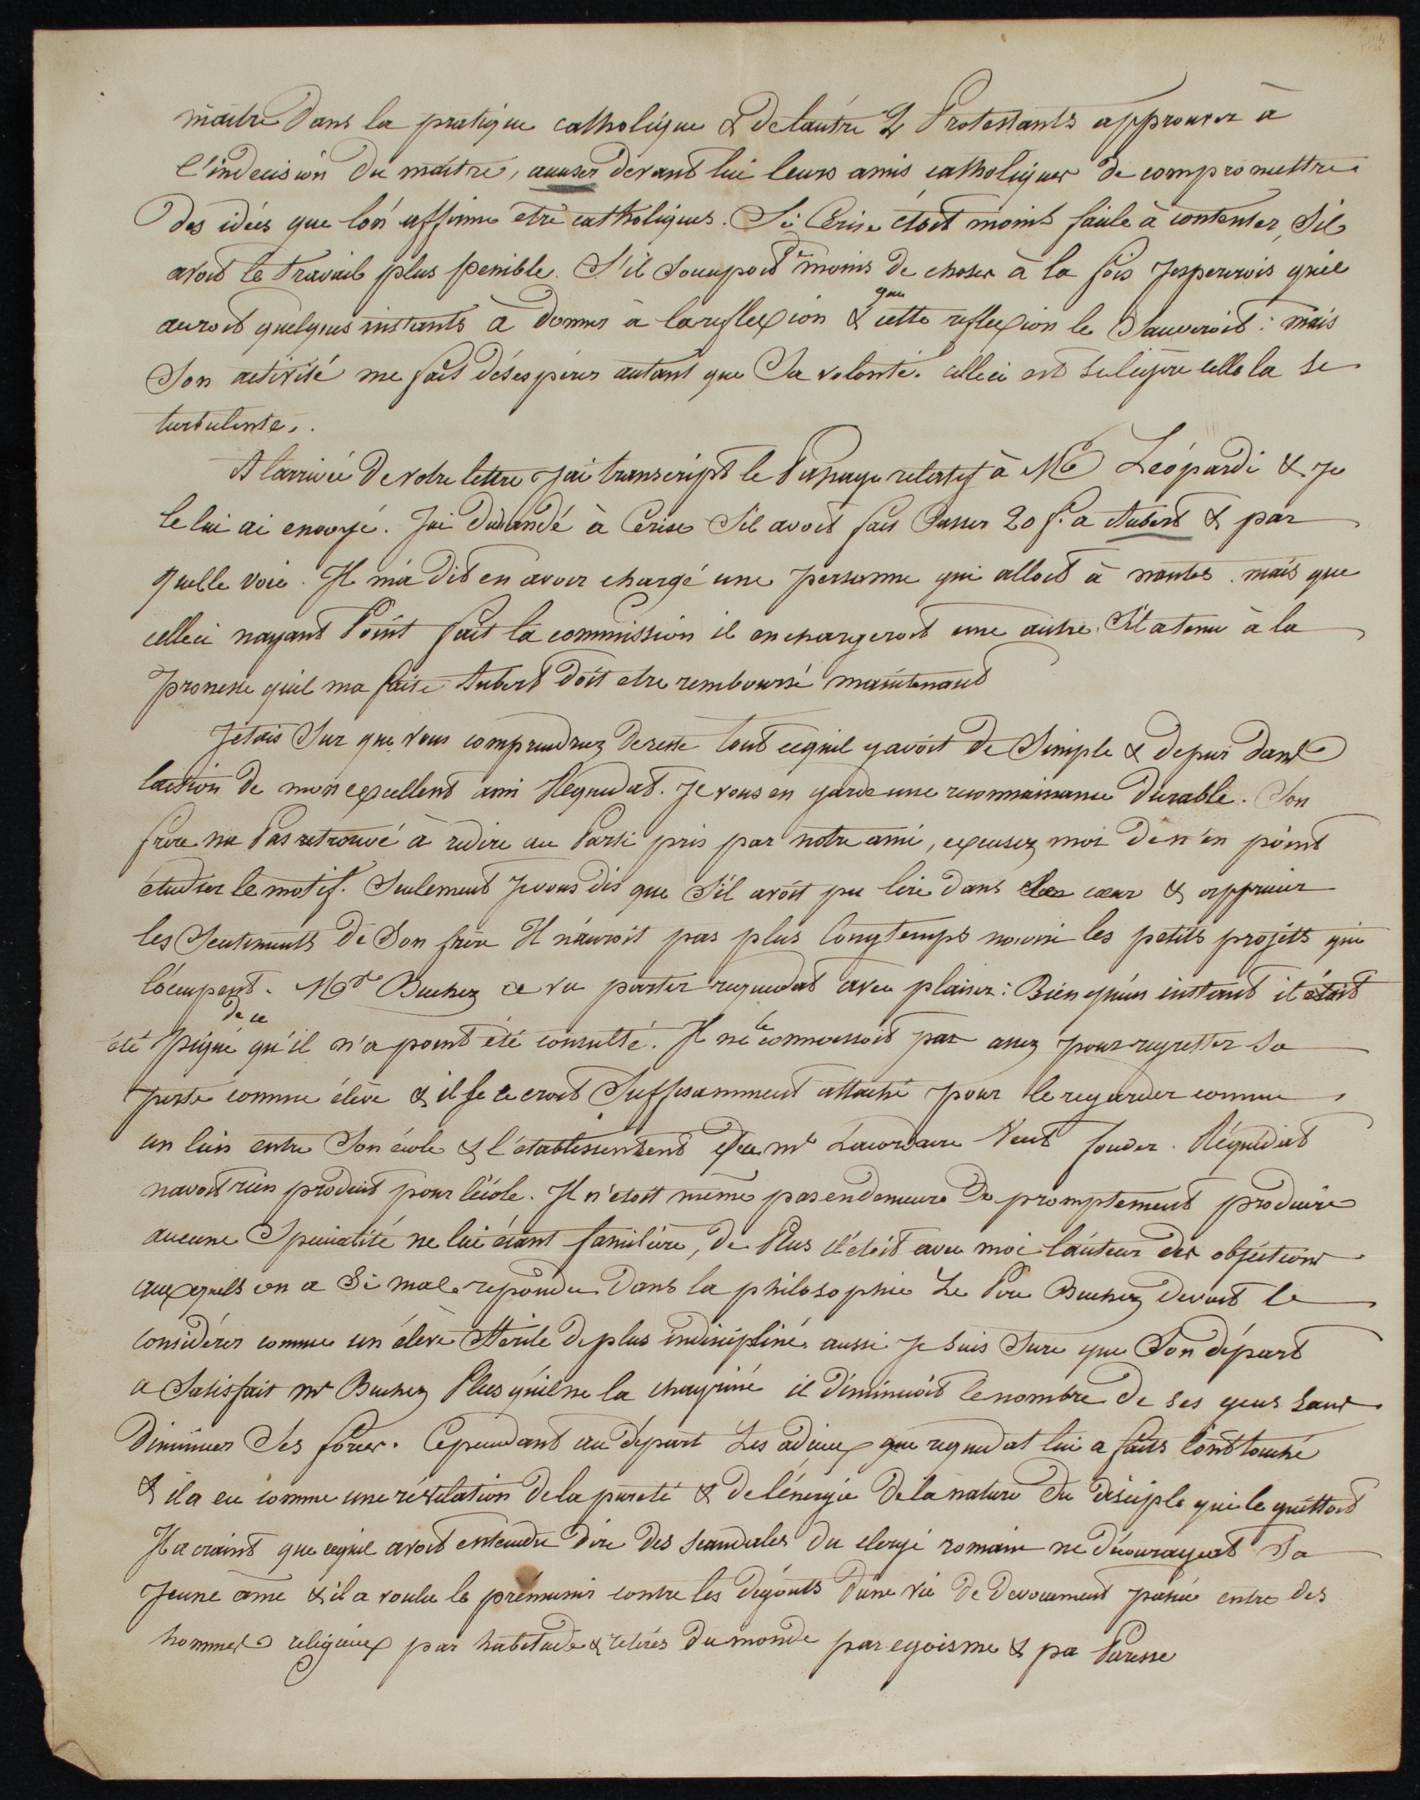 maitre dans la pratique catholique & de lautre 2 Protestants approuver à
l'indecision du maitre, accuser devant lui leurs amis catholiques de compromettre
des idées que lon affirme etre catholiques. Si Cerise étoit moins facile à contenter, S'il
avoit le travail plus penible. S'il s'occupoit de moins de choses à la fois jespererois quil
auroit quelques instants à donner à la reflexion & que cette reflexion le sauveroit : mais
Son activité me fait désespérer autant que Sa volonté. celle ci est si legère celle la si
turbulente.
A larrivée de votre lettre jai transcript le Passage relatif à Mr Léopardi & je
le lui ai envoyé. Jai demandé à Cerise s'il avoit fait Passer 20 f. a Aubert & par
quelle voie. Il m'a dit en avoir chargé une personne qui alloit à nantes. mais que
celle ci nayant Point fait la commission il en chargeroit une autre. S'il a tenu à la
promesse quil ma faite Aubert doit etre remboursé maintenant
Jetais Sur que vous comprendriez de reste tout cequil y avoit de Simple & de pur dans
laction de mon excellent ami Réquedat. Je vous en garde une reconnaissance durable. Son
frère na Pas retrouvé à redire au Parti pris par notre ami, excusez moi de n'en point
étudier le motif. Seulement je vous dis que s'il avoit pu lire dans le cœur & apprecier
les Sentiments de Son frère Il n'auroit pas plus longtemps nourri les petits projets qui
l'occupent. Mr Buchez a vu partir requedat avec plaisir : Bien qu'un instant il
été piqué de ce qu'il n'a point été consulté. Il ne le connoissoit pas assez pour regretter sa
perte comme élève & il se le croit Suffisamment attaché pour le regarder comme
un lien entre Son école & l'établissement que mr Lacordaire Veut fonder. Réquedat
navoit rien produit pour lécole. Il n'étoit même pas en demeure de promptement produire
aucune Spécialité ne lui étant familière, de Plus il étoit avec moi lauteur des objections
auxquels on a si mal repondu dans la philosophie Le Père Buchez devoit le
considérer comme un élève Sterile de plus indiscipliné aussi je suis Sure que Son départ
a Satisfait mr Buchez Plus quil ne la chagriné il diminuoit le nombre de ses gens sans
diminuer Ses forces. Cependant au départ Les adieux que requedat lui a faits l'ont touché
& il a eu comme une révélation de la pureté & de l'énergie de la nature du disciple qui le quittoit
Il a craint que cequil avoit entendu dire des scandales du clergé romain ne décourageat sa
jeune ame & il a voulu le prémunir contre les dégouts d'une vie de devouement passée entre des
hommes religieux par habitude & retirés du monde par egoisme & pa Paresse